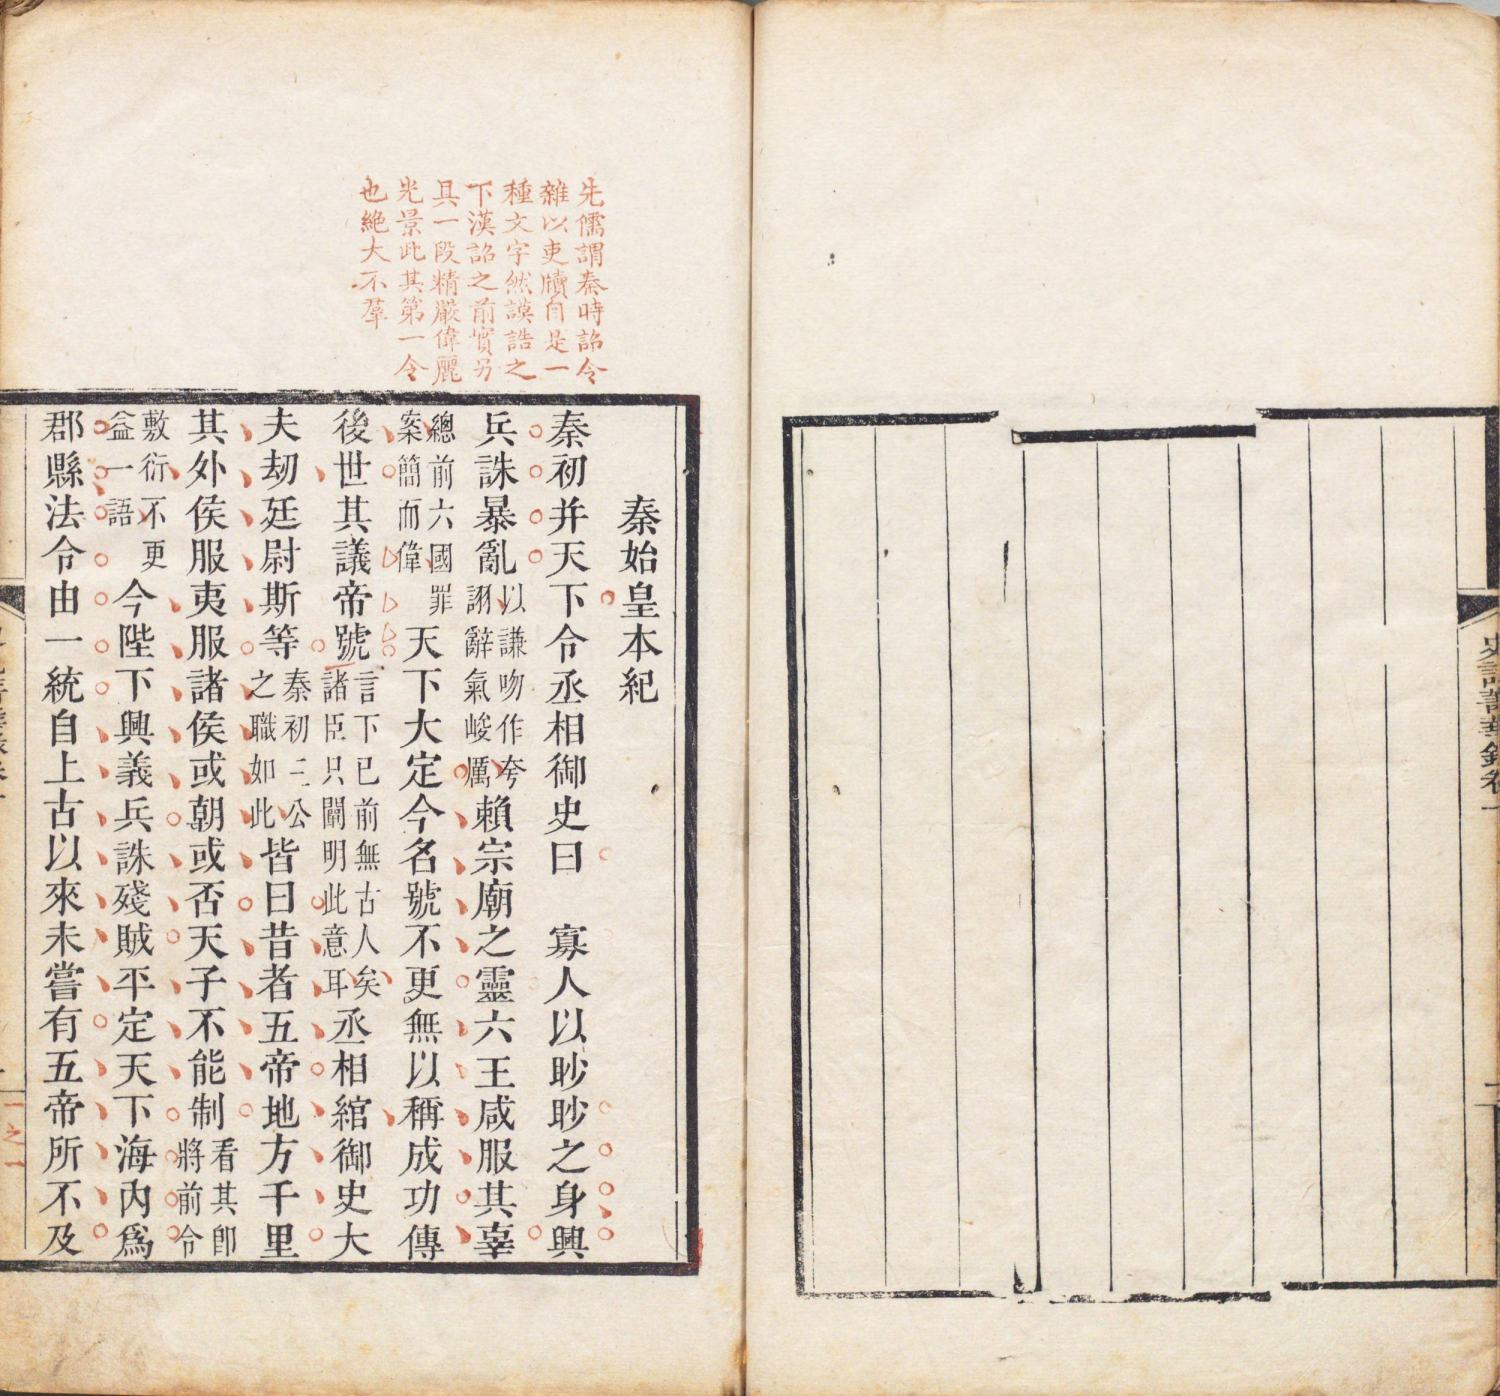 史記菁華錄卷一
先儒謂秦時詔令
雜以吏牘自是一
種文字然謨誥之
下漢詔之前實另
具一段精嚴偉麗
光景此其第一令
也絕大不羣
秦始皇本紀
秦初并天下令丞相御史曰　寡人以眇眇之身興
兵誅暴亂以謙吻作夸詡辭氣峻厲賴宗廟之靈六王咸服其辜
總前六國罪案簡而偉天下大定今名號不更無以稱成功傳
後世其議帝號言下已前無古人矣諸臣只闡明此意耳丞相綰御史大
夫刼廷尉斯等秦初三公之職如此皆曰昔者五帝地方千里
其外侯服夷服諸侯或朝或否天子不能制看其卽將前令
敷衍不更益一語今陛下興義兵誅殘賊平定天下海內爲
郡縣法令由一統自上古以來未嘗有五帝所不及
一之一